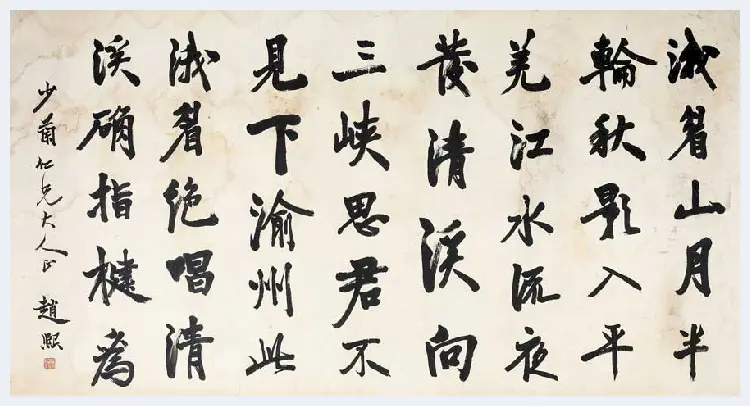 涐眉山月半
輪秋影入平
羌江水流夜
發清溪向
三峽思君不
見下渝州此
涐眉絶唱清
溪确指犍為
少仁兄大人正 趙熙